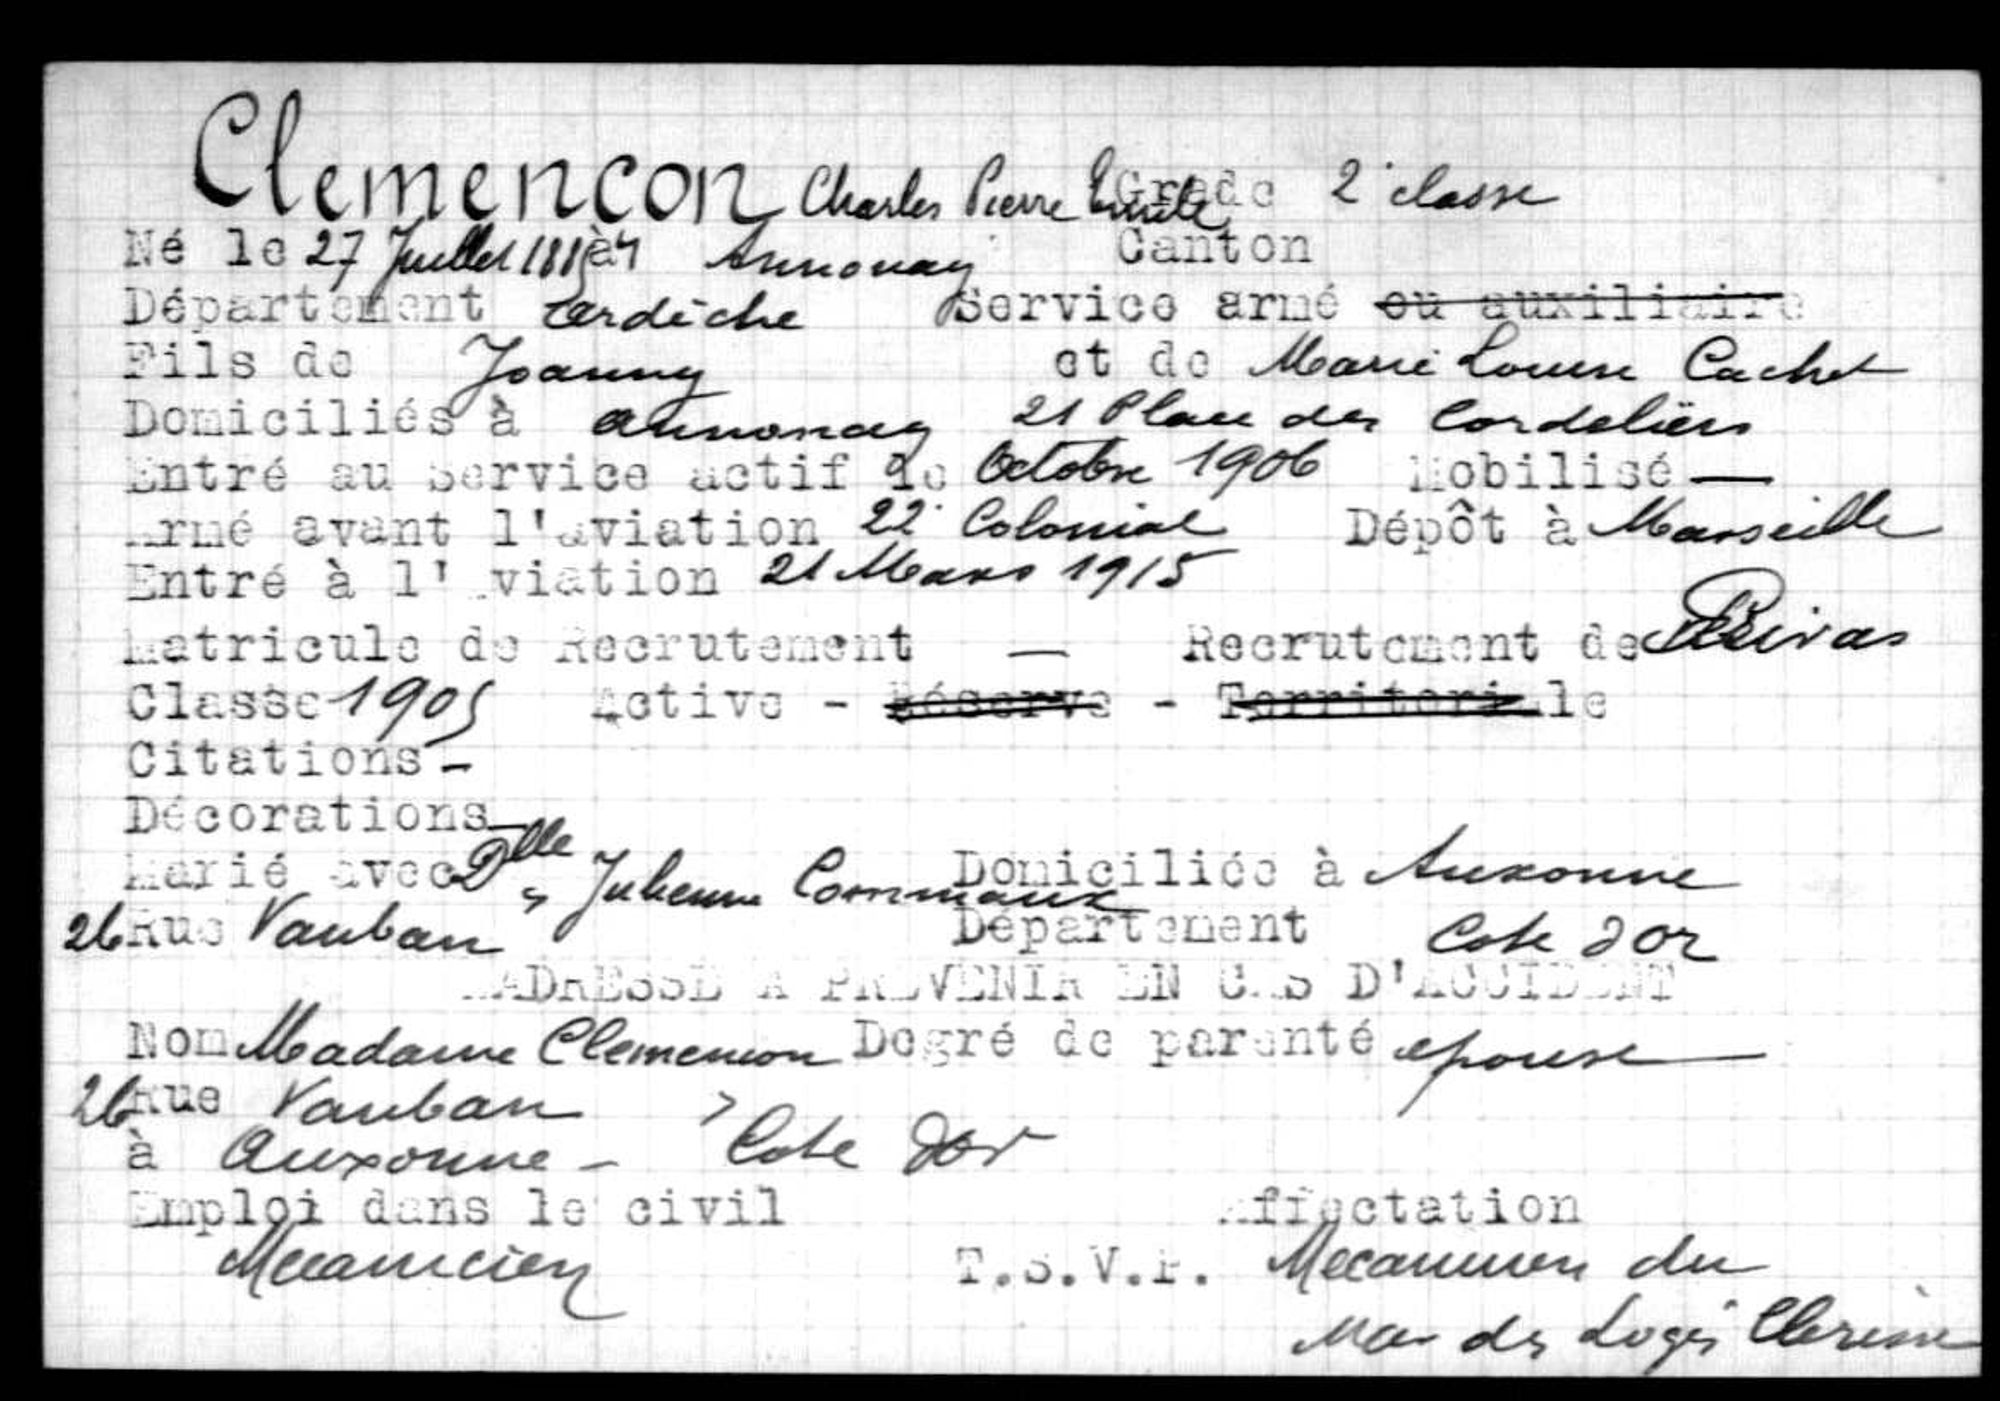 Clemencon Charles Pierre Emile Grade 2e classe
Né le 27 Juillet 1885 à Annonay Canton
Département Ardèche Service armé ou auxiliaire
Fils de Joanny et de Marie Louise Cachet
Domiciliés à Annonay 21 Place des Cordeliers
Entré au Service actif le Octobre 1906 Mobilisé —
Armé avant l'aviation 22e Colonial Dépôt à Marseille
Entré à l'Aviation 21 Mars 1915
Matricule de Recrutement — Recrutement de Privas
Classe 1905 Active - Réserve - Territoriale
Citations -
Décorations -
Marié avec Dlle Julienne Commaux Domiciliée à Auxonne
26 Rue Vauban Département Cote d'Or
ADRESSE A PREVENIR EN CAS D'ACCIDENT
Nom Madame Clemencon Degré de parenté epouse
26 Rue Vauban
à Auxonne - Cote d'Or
Emploi dans le civil Affectation
Mecanicien T.S.V.P. Mecanicien du
Mar des Logis